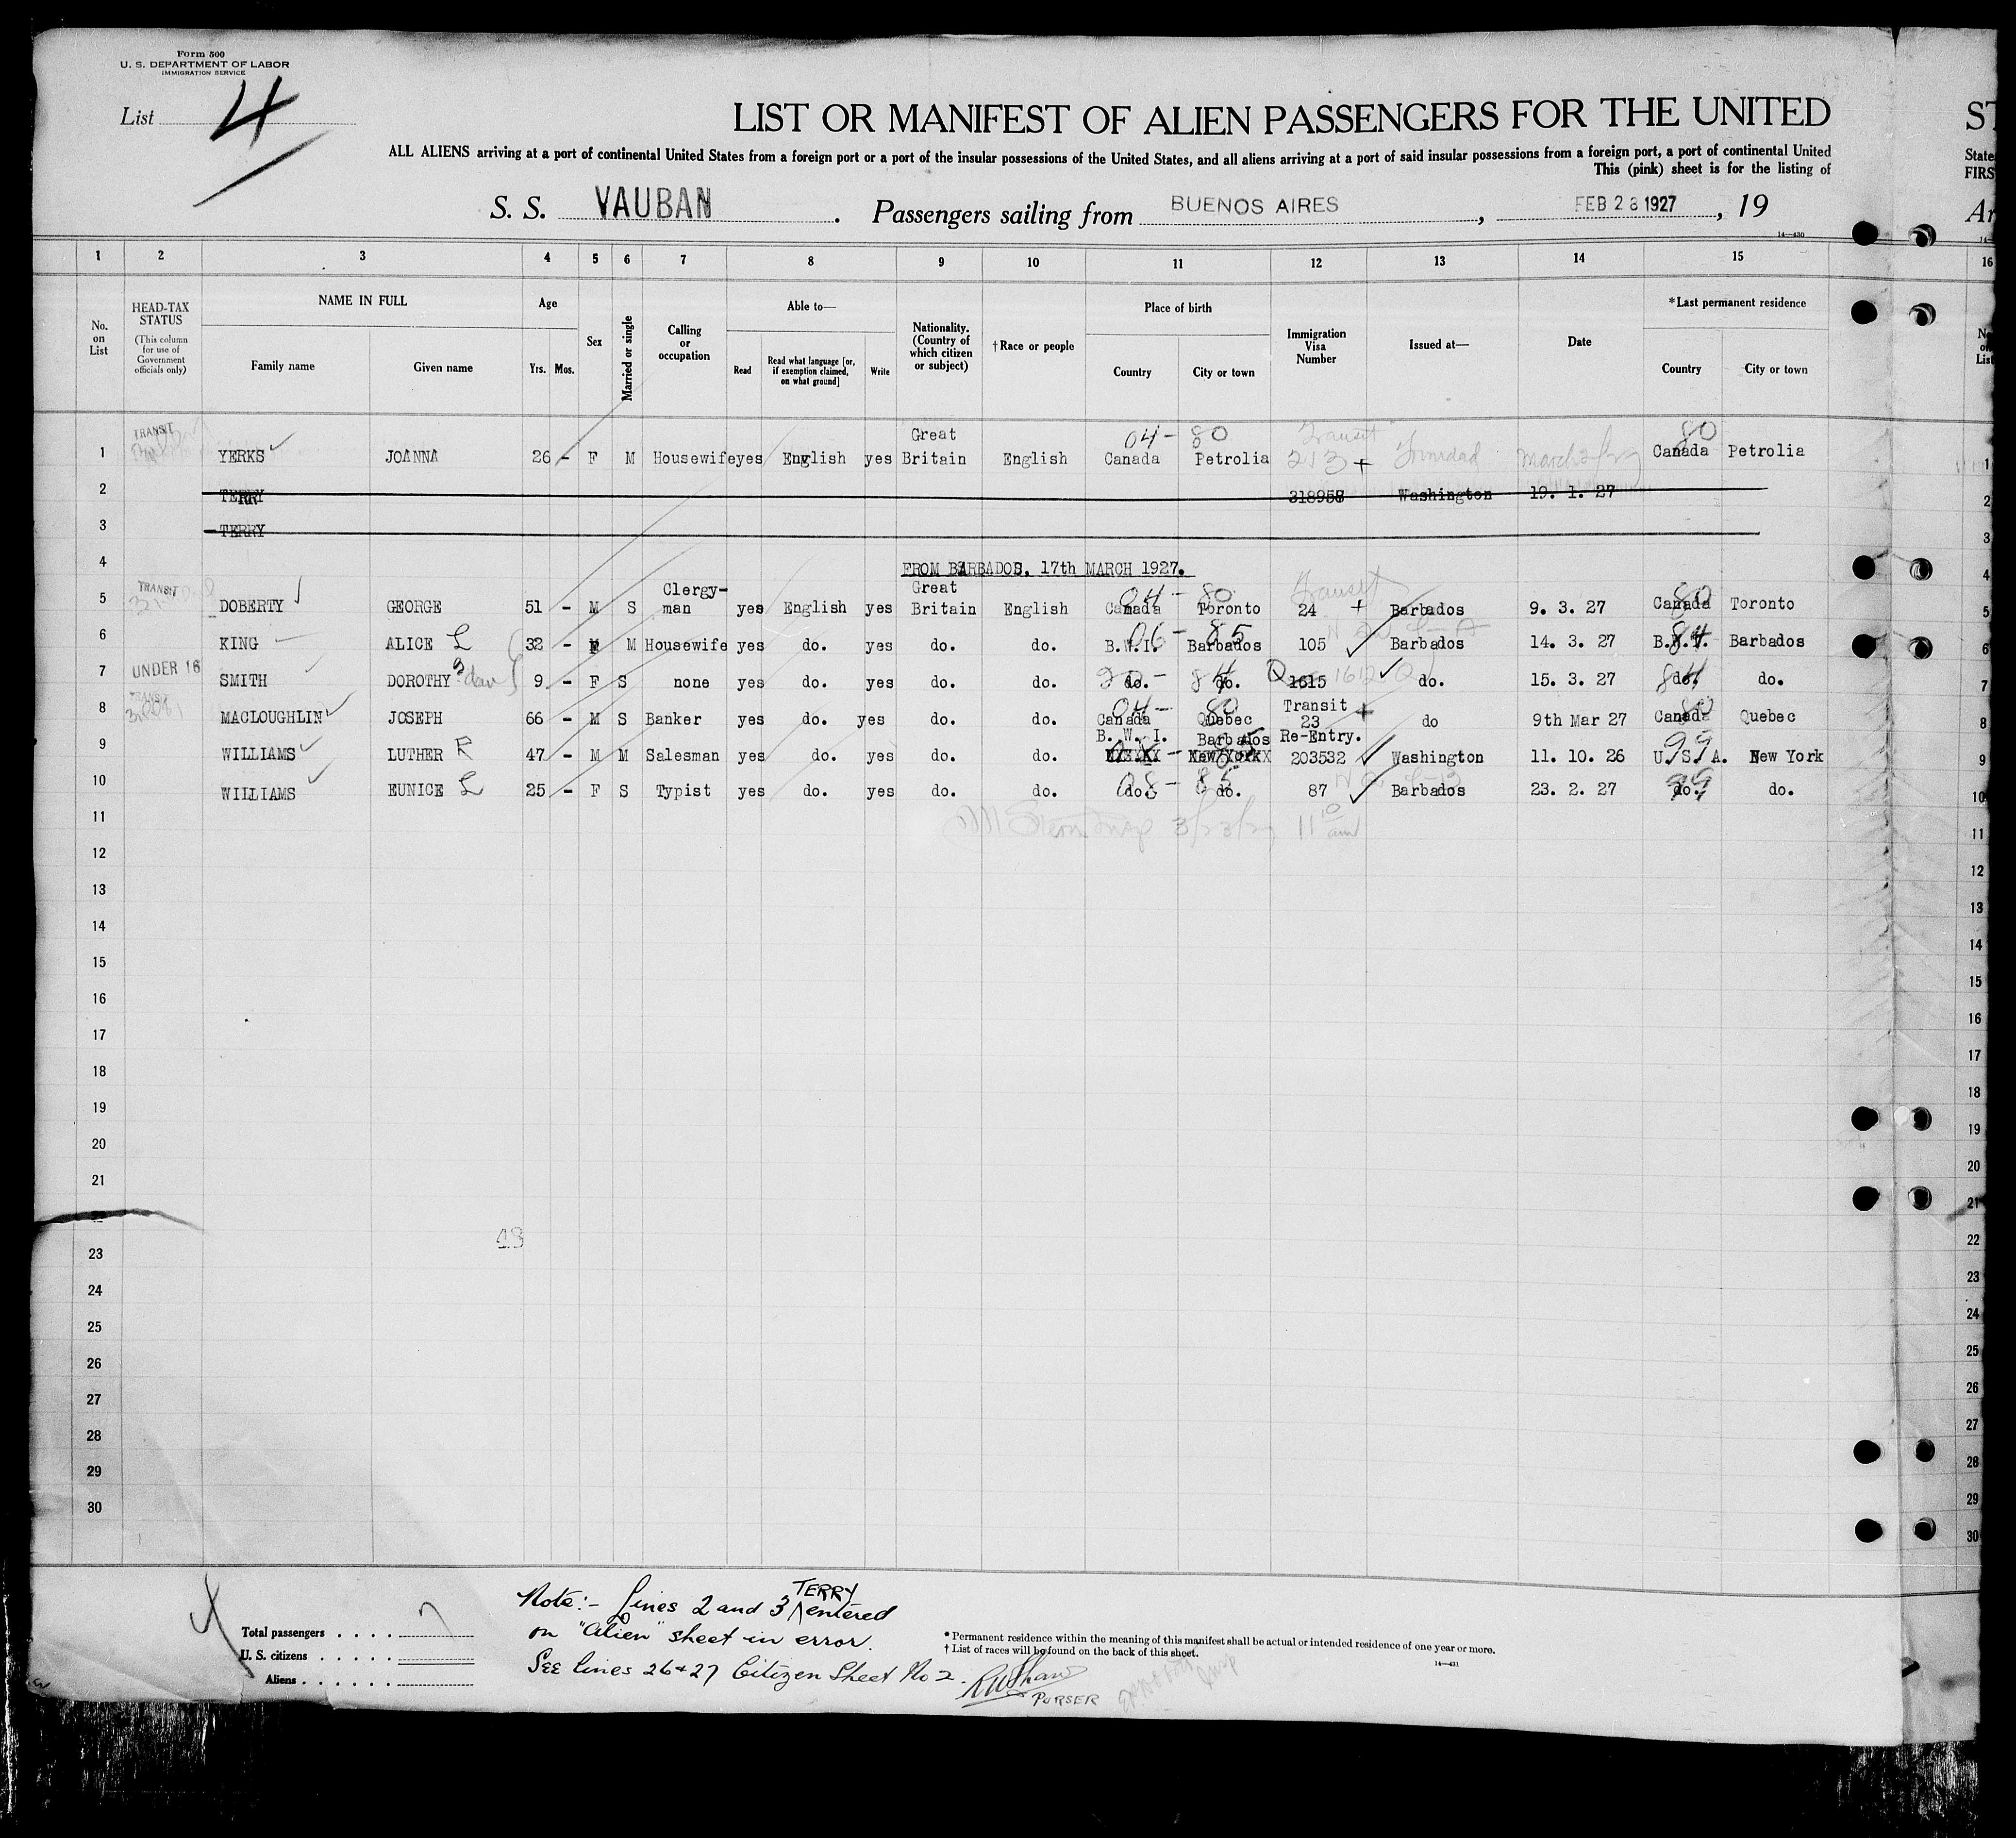 Form 500
U. S. DEPARTMENT OF LABOR
IMMIGRATION SERVICE
List 4
LIST OR MANIFEST OF ALIEN PASSENGERS FOR THE UNITED
ST
ALL ALIENS arriving at a port of continental United States from a foreign port or a port of the insular possessions of the United States, and all aliens arriving at a port of said insular possessions from a foreign port, a port of continental United
State
This (pink) sheet is for the listing of
FIRS
S. S. VAUBAN. Passengers sailing from BUENOS AIRES, FEB 28 1927, 19
Ar
14—430
1 2 3 4 5 6 7 8 9 10 11 12 13 14 15 16
No. on List
HEAD-TAX STATUS
(This column for use of Government officials only)
NAME IN FULL
Family name Given name
Age
Yrs. Mos.
Sex
Married or single
Calling or occupation
Able to—
Read Read what language [or, if exemption claimed, on what ground] Write
Nationality. (Country of which citizen or subject)
†Race or people
Place of birth
Country City or town
Immigration Visa Number
Issued at—
Date
*Last permanent residence
Country City or town
TRANSIT Great 04 - 80 Transit 80
1 YERKS JOANNA 26 - F M Housewife yes English yes Britain English Canada Petrolia 213 + Trinidad March 2/27 Canada Petrolia 1
2 TERRY 318958 Washington 19. 1. 27 2
3 TERRY 3
4 FROM BARBADOS. 17th MARCH 1927. 4
TRANSIT Clergy- Great 04 - 80 Transit 80
5 DOBERTY GEORGE 51 - M S man yes English yes Britain English Canada Toronto 24 + Barbados 9. 3. 27 Canada Toronto 5
6 KING ALICE L 32 - F M Housewife yes do. yes do. do. B.W.I. Barbados 105 Barbados 14. 3. 27 B.W.I. Barbados 6
7 UNDER 16 SMITH DOROTHY 9 - F S none yes do. yes do. do. do. do. Q 1615 1612 Q do. 15. 3. 27 do. do. 7
TRANSIT 04 - 80 Transit 80
8 MACLOUGHLIN JOSEPH 66 - M S Banker yes do. yes do. do. Canada Quebec 23 + do 9th Mar 27 Canada Quebec 8
B. W. I. Barbados Re-Entry. 99
9 WILLIAMS LUTHER R 47 - M M Salesman yes do. yes do. do. New York 203532 Washington 11. 10. 26 U. S. A. New York 9
10 WILLIAMS EUNICE L 25 - F S Typist yes do. yes do. do. do. do. 87 Barbados 23. 2. 27 do. do. 10
11 3/23/27 11 10 am 11
12 12
13 13
14 14
15 15
16 16
17 17
18 18
19 19
20 20
21 21
22
23 23
24 24
25 25
26 26
27 27
28 28
29 29
30 30
Note:- Lines 2 and 3 TERRY entered
on "Alien" sheet in error.
See lines 26+27 Citizen Sheet No 2.
RWShaw
PURSER
Total passengers . . . . 7
U. S. citizens . . . . .
Aliens . . . . . .
* Permanent residence within the meaning of this manifest shall be actual or intended residence of one year or more.
† List of races will be found on the back of this sheet.
14—431